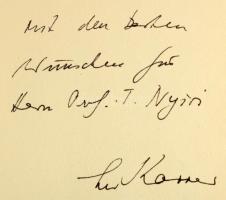 Mit den besten
Wünschen für
Herrn Prof. T. Nyiri
Karrer